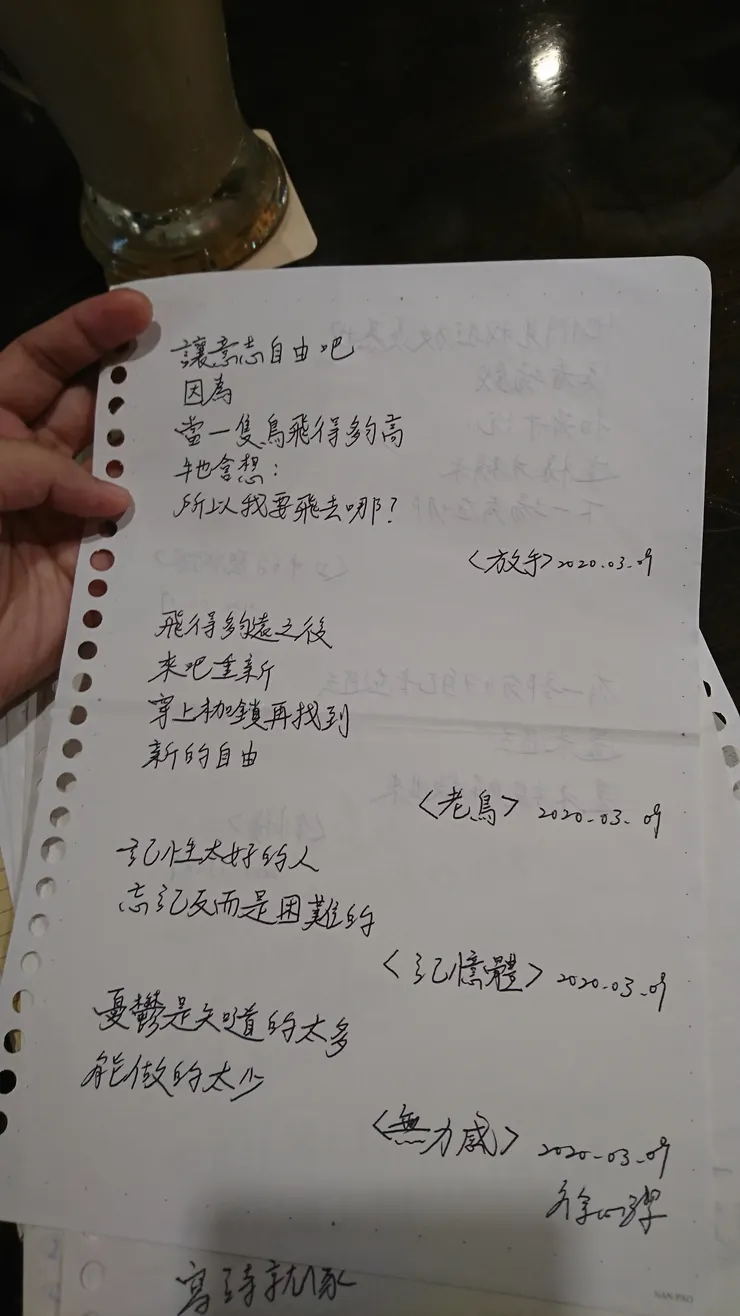 讓意志自由吧
因為
當一隻鳥飛得夠高
牠會想：
所以我要飛去哪？
〈放手〉2020.03.09
飛得夠遠之後
來吧重新
穿上枷鎖再找到
新的自由
〈老鳥〉2020.03.09
記性太好的人
忘記反而是困難的
〈記憶體〉2020.03.09
憂鬱是知道的太多
能做的太少
〈無力感〉2020.03.09
徐
寫詩就像
NAN PAO